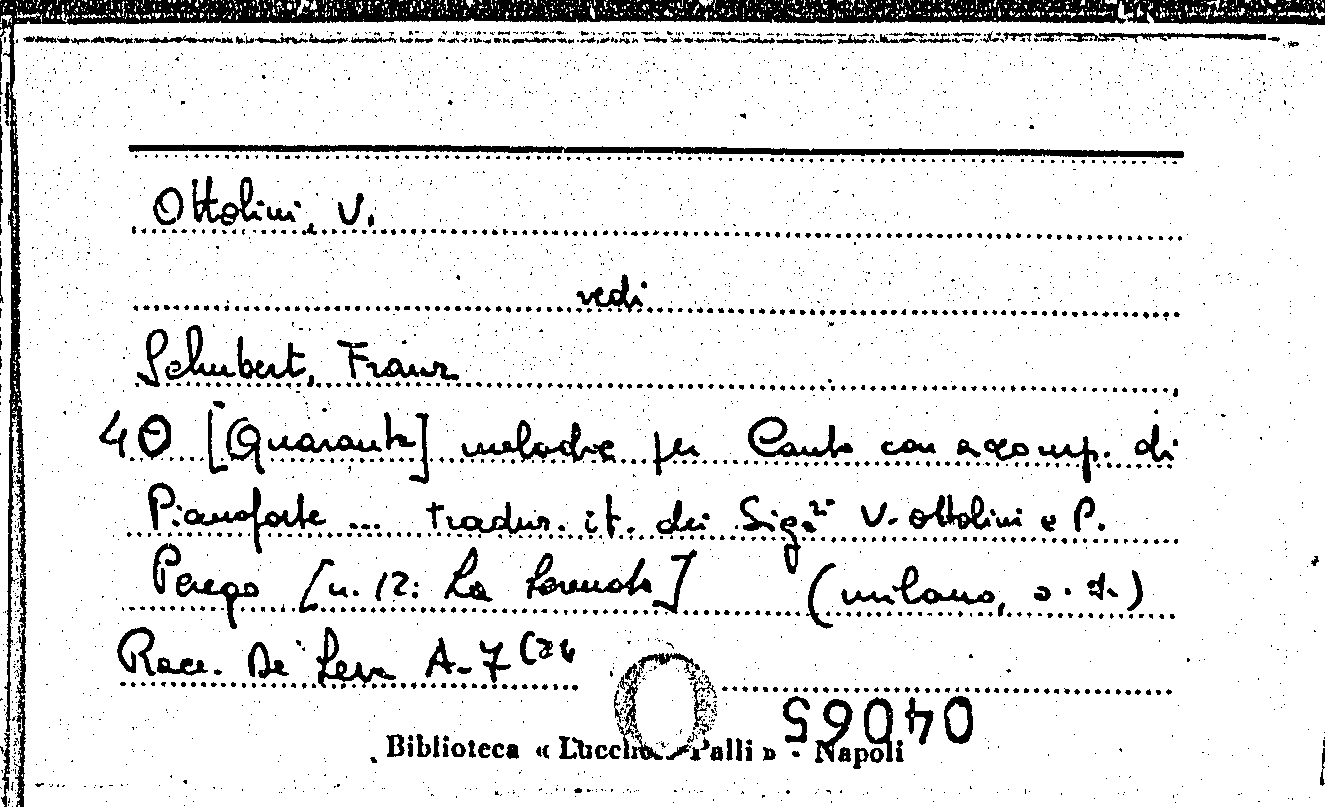 Ottolini, V.
vedi
Schubert, Franz
40 [Quaranta] melodie per Canto con accomp. di
Pianoforte ... tradur. it. dei Sig.ri V. Ottolini e P.
Perego [n. 12: La Serenata] (Milano, s. t.)
Racc. De Leva A-7 (24
04065
Biblioteca « Lucchesi Palli » - Napoli